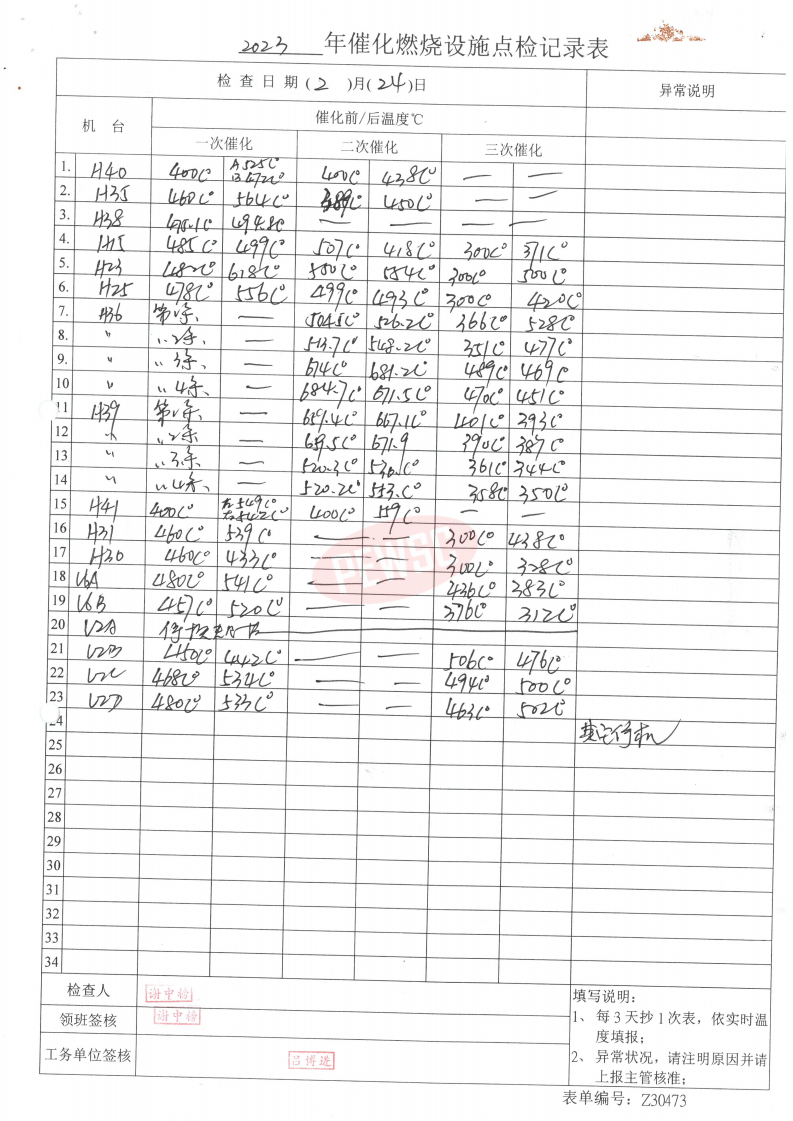 2023 年催化燃烧设施点检记录表
检查日期(2)月(24)日 异常说明
机 台 催化前/后温度℃
一次催化 二次催化 三次催化
1. H40 400C° A525C° B472C° 400C° 438C° — —
2. H35 460C° 564C° 389C° 450C° — —
3. H38 498.8C° — — — —
4. H15 485C° 499C° 507C° 418C° 300C° 371C°
5. H23 482C° 618C° 500C° 554C° 300C° 500C°
6. H25 478C° 556C° 499C° 493C° 300C° 420C°
7. H36 — 504.5C° 526.2C° 366C° 528C°
8. 〃 〃2条 — 513.7C° 548.2C° 351C° 477C°
9. 〃 〃3条 — 674C° 681.2C° 489C° 469C°
10 〃 〃4条 — 684.7C° 671.5C° 470C° 451C°
11 H39 — 659.4C° 667.1C° 401C° 393C°
12 〃 〃2条 — 659.5C° 671.9 390C° 387C°
13 〃 〃3条 — 520.3C° 361C° 344C°
14 〃 〃4条 — 520.2C° 553.C° 358C° 350C°
15 H41 400C° 左549C° 右542C° 400C° 559C° — —
16 H31 460C° 539C° — — 300C° 438C°
17 H30 460C° 433C° — — 300C° 328C°
18 V6A 480C° 541C° — — 436C° 383C°
19 V6B 457C° 520C° — — 376C° 312C°
20 V2A
21 V2B 450C° 442C° — — 506C° 476C°
22 V2C 468C° 534C° — — 494C° 500C°
23 V2D 480C° 533C° — — 463C° 502C°
24 其它停机
25
26
27
28
29
30
31
32
33
34
PEWSC
检查人
领班签核
工务单位签核 吕博进
填写说明：
1、每3天抄1次表，依实时温
度填报；
2、异常状况，请注明原因并请
上报主管核准；
表单编号：Z30473